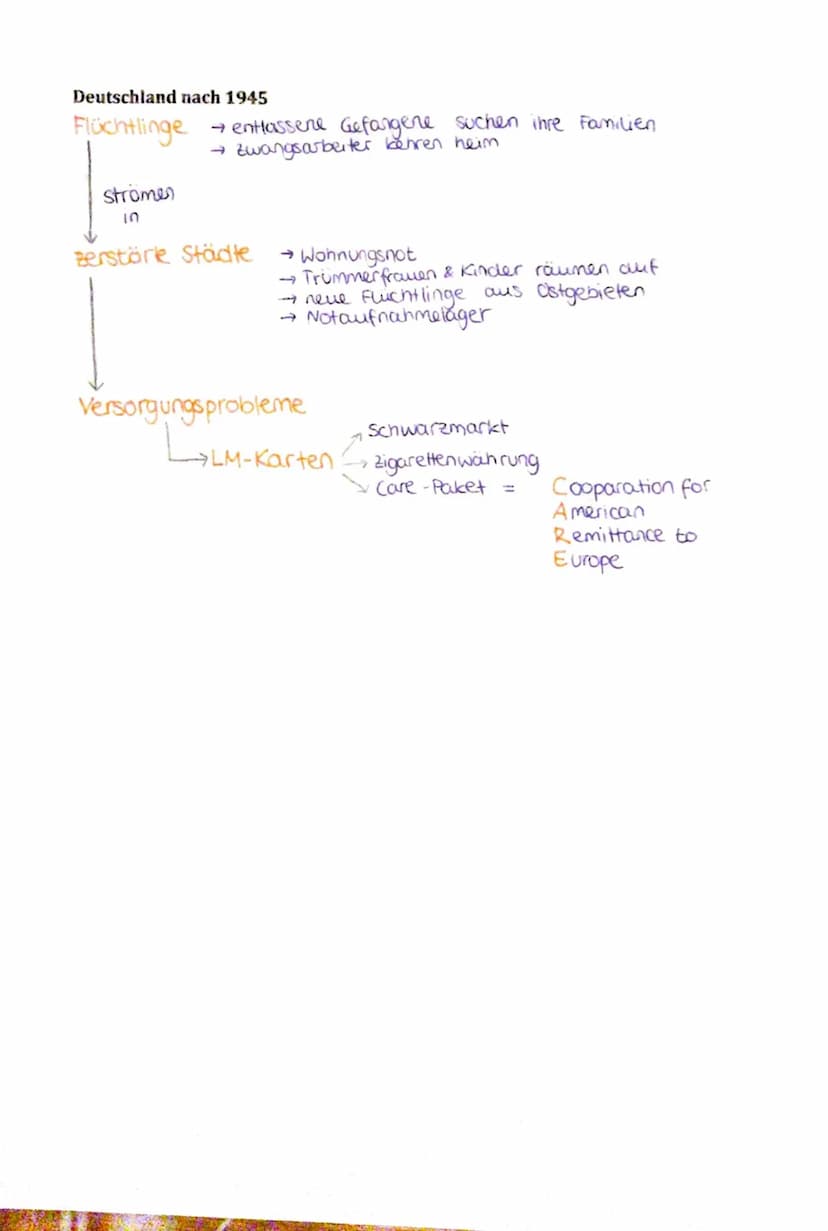 Deutschland nach 1945
Flüchtlinge → entlassene Gefangene suchen ihre Familien
→ Zwangsarbeiter kehren heim
strömen
in
zerstörte Städte → Wohnungsnot
→ Trümmerfrauen & Kinder räumen auf
→ neue Flüchtlinge aus Ostgebieten
→ Notaufnahmelager
Versorgungsprobleme
→ LM-Karten → Schwarzmarkt
→ Zigarettenwährung
→ Care-Paket = Cooparation for
American
Remittance to
Europe